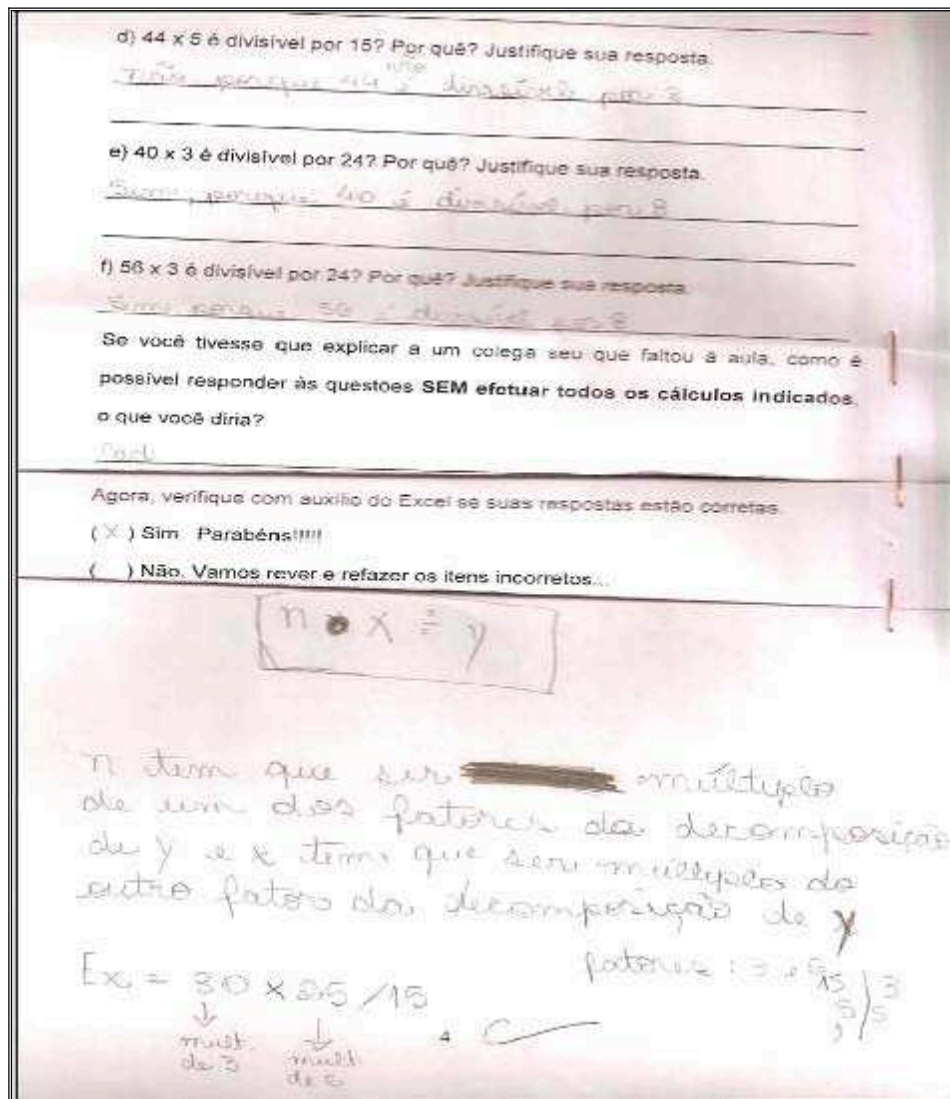 d) 44 x 5 é divisível por 15? Por quê? Justifique sua resposta.
Não porque 44 não é divisível por 3
e) 40 x 3 é divisível por 24? Por quê? Justifique sua resposta.
Sim, porque 40 é divisível por 8
f) 56 x 3 é divisível por 24? Por quê? Justifique sua resposta.
Sim porque 56 é divisível por 8
Se você tivesse que explicar a um colega seu que faltou à aula, como é
possível responder às questões SEM efetuar todos os cálculos indicados,
o que você diria?
Agora, verifique com auxílio do Excel se suas respostas estão corretas.
( X ) Sim. Parabéns!!!!!
( ) Não. Vamos rever e refazer os itens incorretos...
n • x ÷ y
n tem que ser múltiplo
de um dos fatores da decomposição
de y e x tem que ser múltiplo do
outro fator da decomposição de y
fatores: 3 e 5
Ex = 30 x 25 /15
15 | 3
5 | 5
mult. de 3
mult. de 5
4